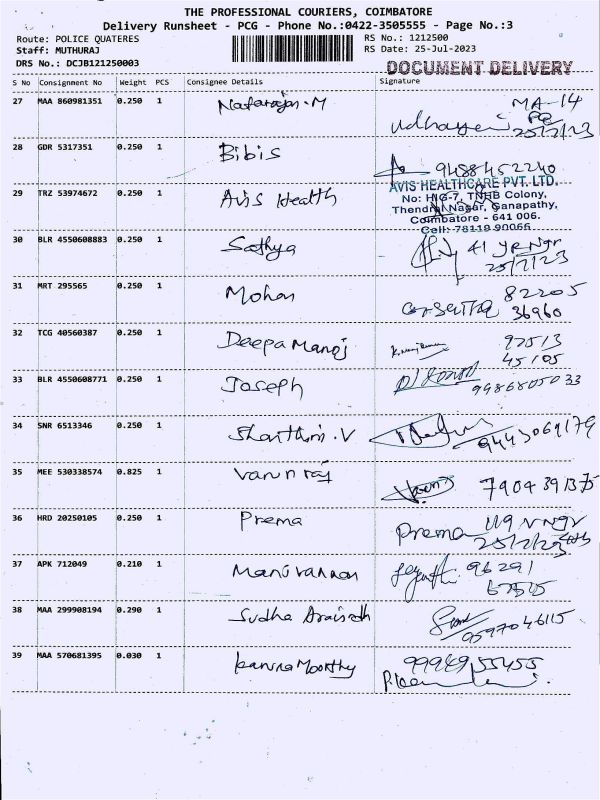 THE PROFESSIONAL COURIERS, COIMBATORE
Delivery Runsheet - PCG - Phone No.:0422-3505555 - Page No.:3
Route: POLICE QUATERES RS No.: 1212500
Staff: MUTHURAJ RS Date: 25-Jul-2023
DRS No.: DCJB121250003 DOCUMENT DELIVERY
S No Consignment No Weight PCS Consignee Details Signature
27 MAA 860981351 0.250 1 Natarajan.M MA-14
25/7/23
28 GDR 5317351 0.250 1 Bibis 9488452240
29 TRZ 53974672 0.250 1 Avis Health AVIS HEALTHCARE PVT. LTD.
No: HIG-7, TNHB Colony,
Thendral Nagar, Ganapathy,
Coimbatore - 641 006.
Cell: 78119 90066
30 BLR 4550608883 0.250 1 Sathya 41
25/7/23
31 MRT 295565 0.250 1 Mohan 82205
36960
32 TCG 40560387 0.250 1 Deepa Manoj
45105
33 BLR 4550608771 0.250 1 Joseph
34 SNR 6513346 0.250 1 Shanthini.V 9443069179
35 MEE 530338574 0.825 1 Varun raj 7904391375
36 HRD 20250105 0.250 1 Prema Prema
25/7/23
37 APK 712049 0.210 1 Manivannan 96291
38 MAA 299908194 0.290 1 Sudha 9597046115
39 MAA 570681395 0.030 1 Karuna Moorthy